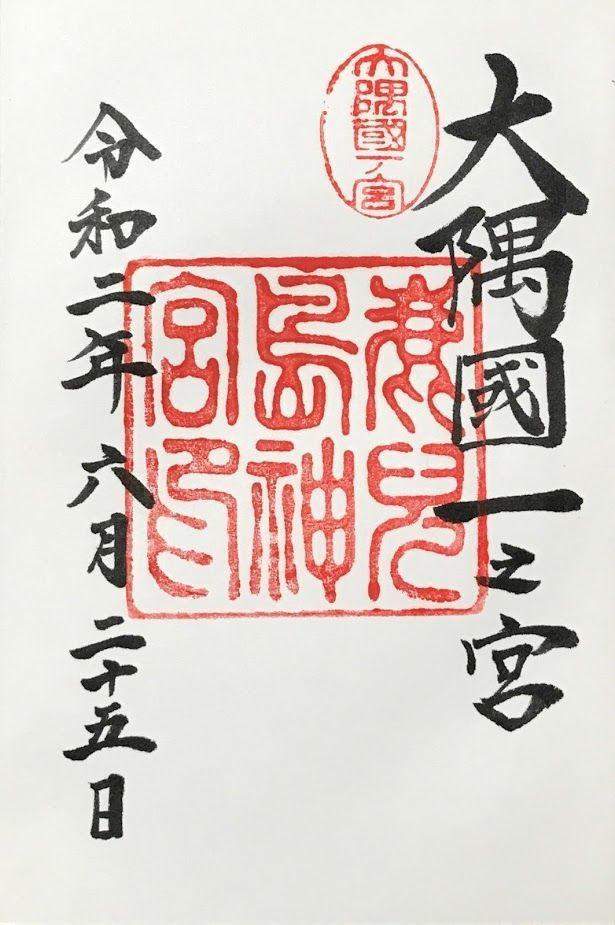 大隅國一之宮
大隅國一ノ宮
鹿兒
島神
宮印
令和二年六月二十五日